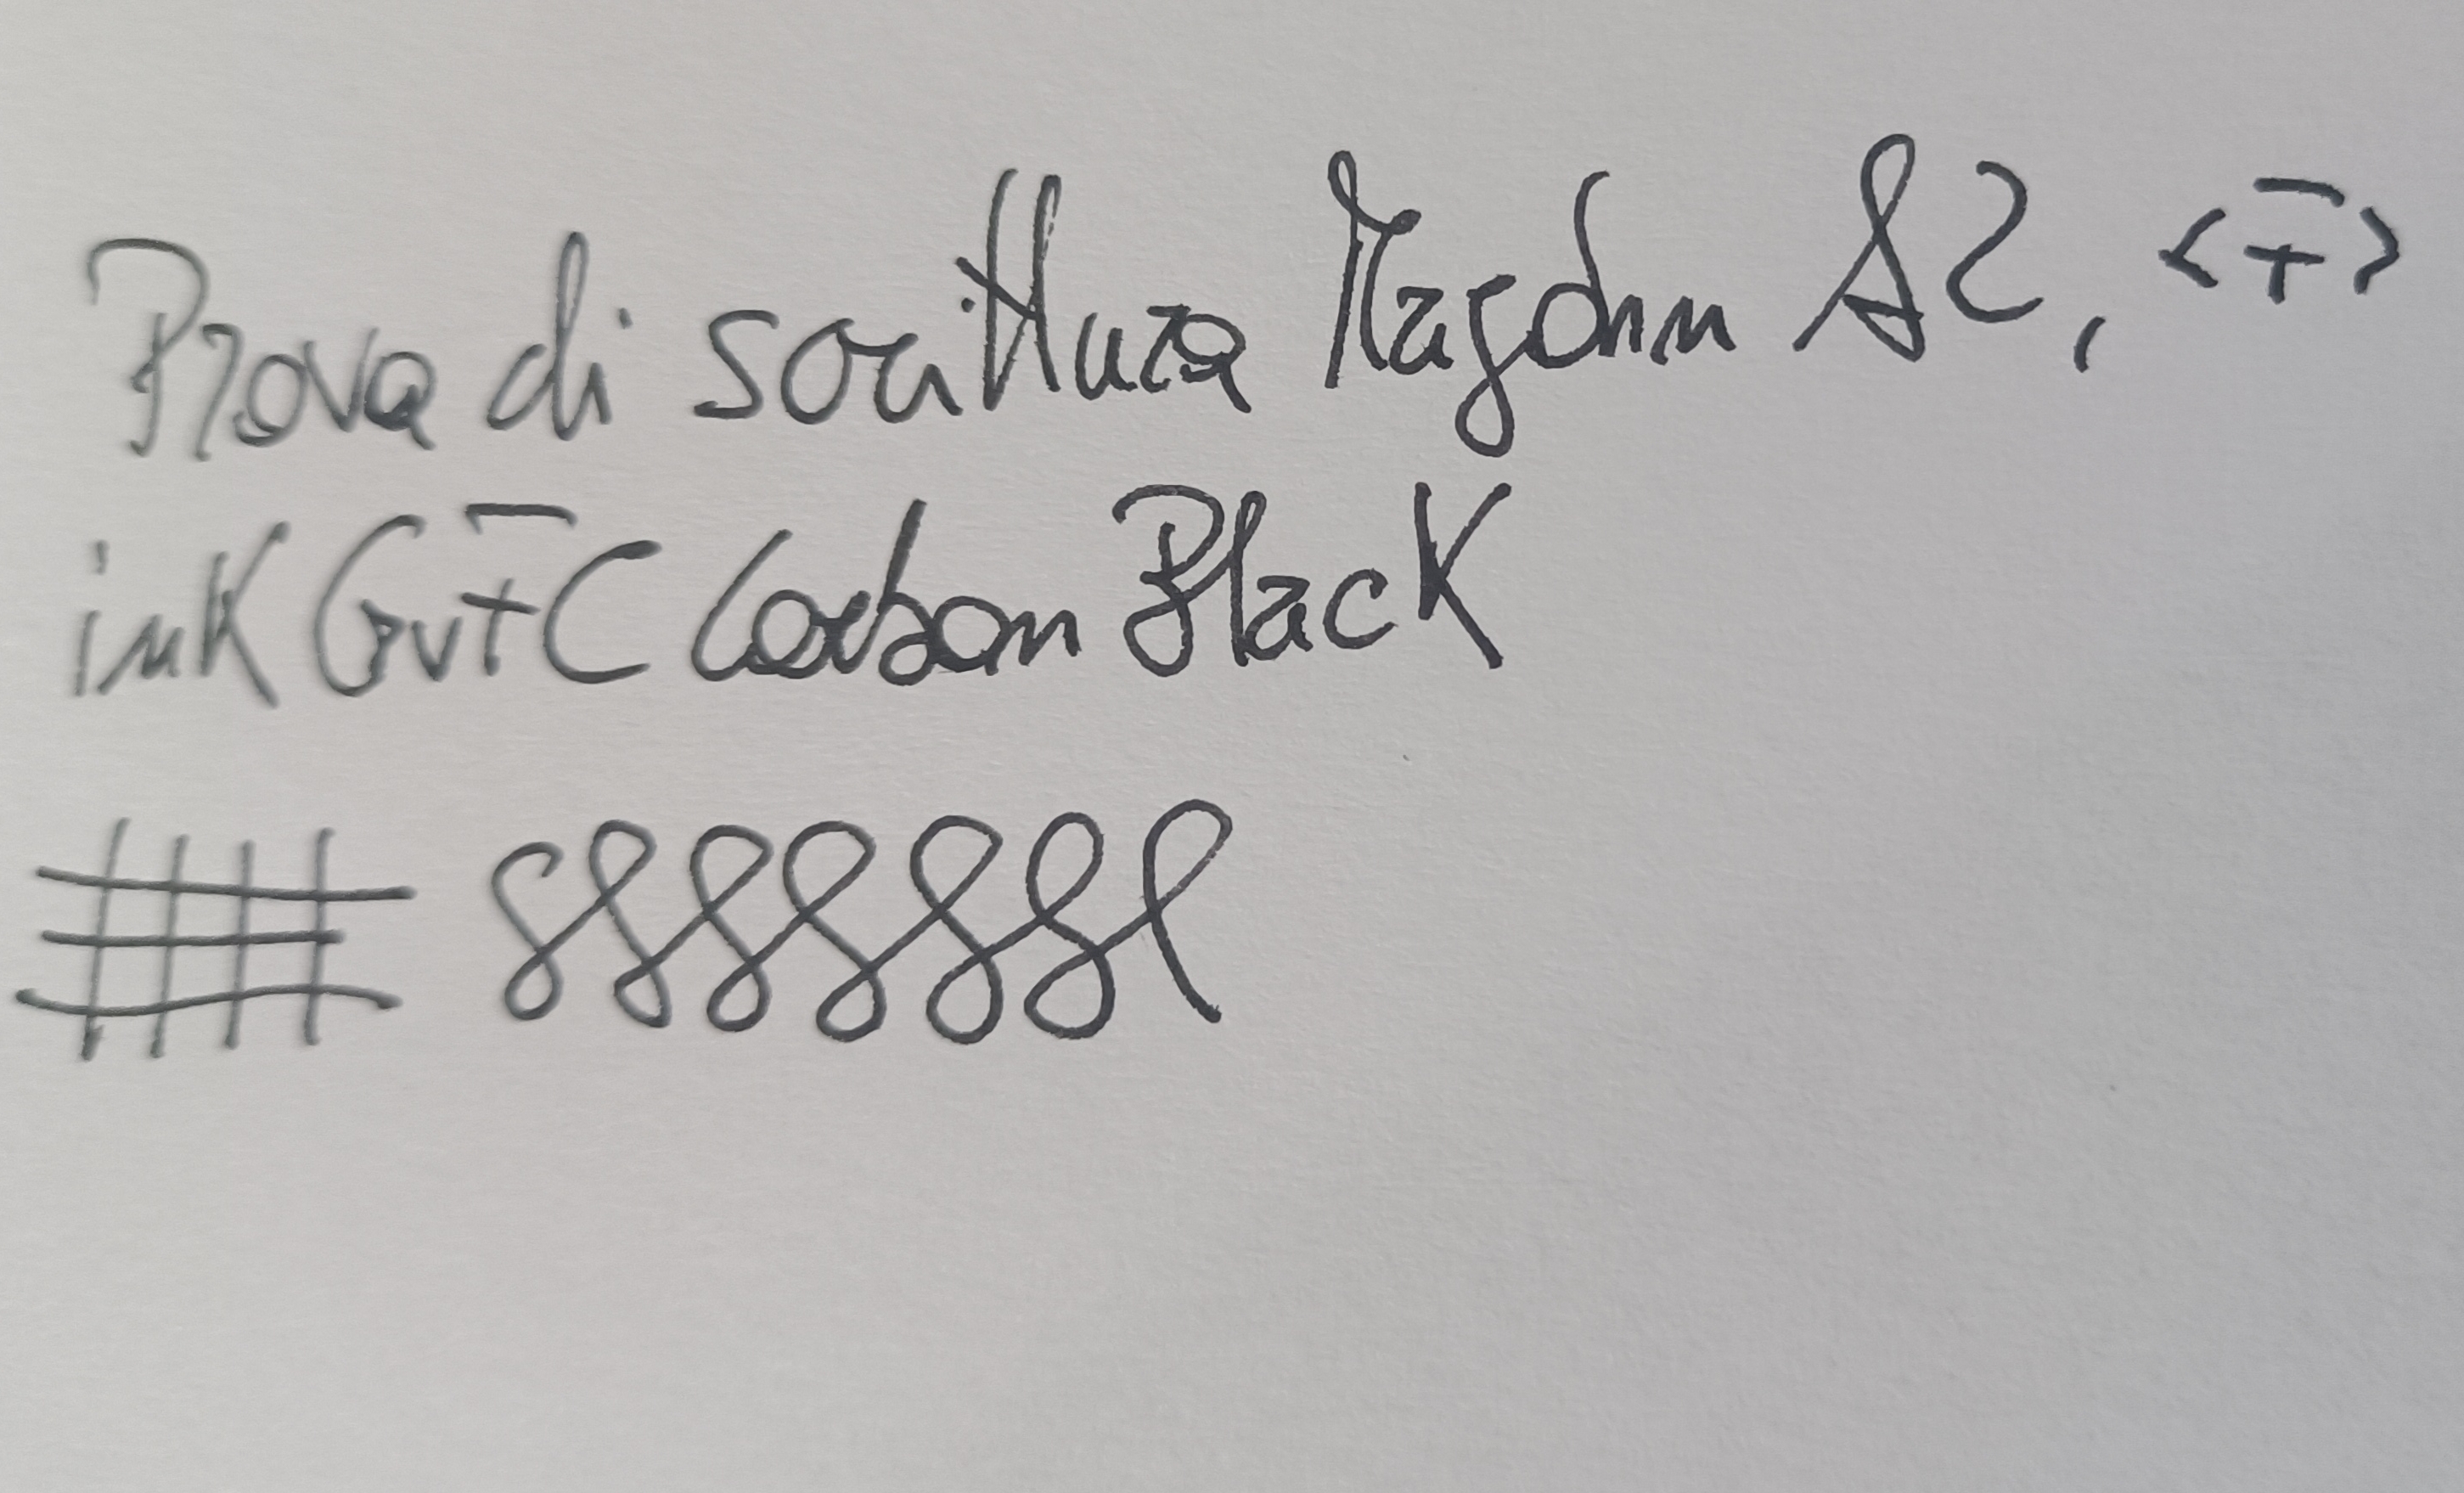 Prova di scrittura Magohm A2, <F>
ink GvFC Carbon Black